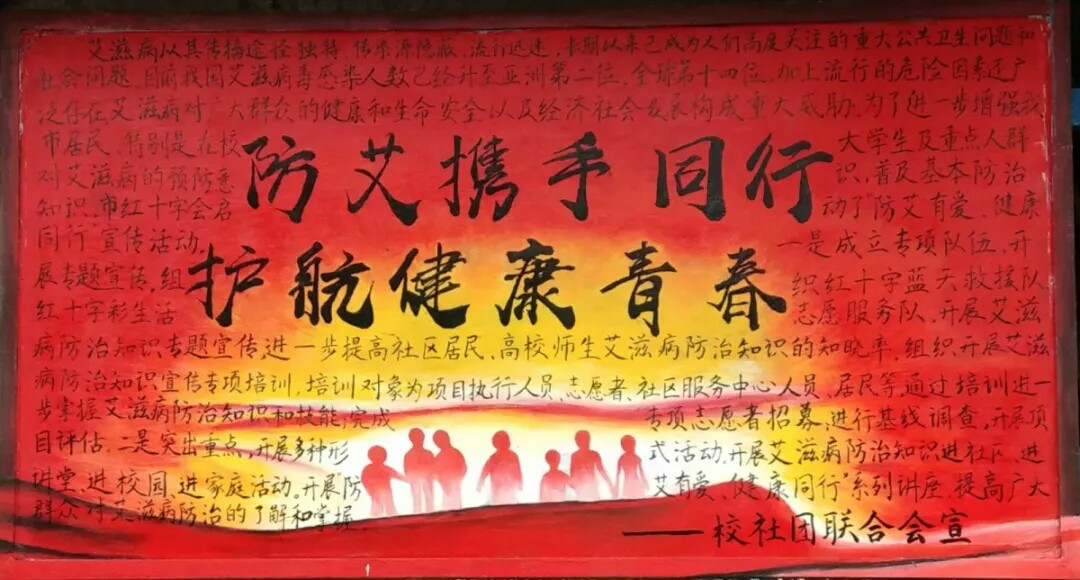 艾滋病以其传播途径独特、传染源隐蔽、流行迅速，长期以来已成为人们高度关注的重大公共卫生问题和
社会问题。目前我国艾滋病毒感染人数已经计至亚洲第二位、全球第十四位，加上流行的危险因素还广
泛存在艾滋病对广大群众的健康和生命安全以及经济社会发展构成重大威胁。为了进一步增强我
市居民，特别是在校大学生及重点人群
对艾滋病的预防意识，普及基本防治
知识，市红十字会启动了“防艾有爱、健康
同行”宣传活动。一是成立专项队伍，开
展专题宣传，组织红十字蓝天救援队
红十字彩生活志愿服务队，开展艾滋
防艾携手同行
护航健康青春
病防治知识专题宣传，进一步提高社区居民、高校师生艾滋病防治知识的知晓率，组织开展艾滋
病防治知识宣传专项培训，培训对象为项目执行人员、志愿者、社区服务中心人员、居民等，通过培训进一
步掌握艾滋病防治知识和技能，完成专项志愿者招募，进行基线调查，开展项
目评估。二是突出重点，开展多种形式活动。开展艾滋病防治知识进社区、进
讲堂、进校园、进家庭活动。开展“防艾有爱、健康同行”系列讲座，提高广大
群众对艾滋病防治的了解和掌握。
——校社团联合会宣